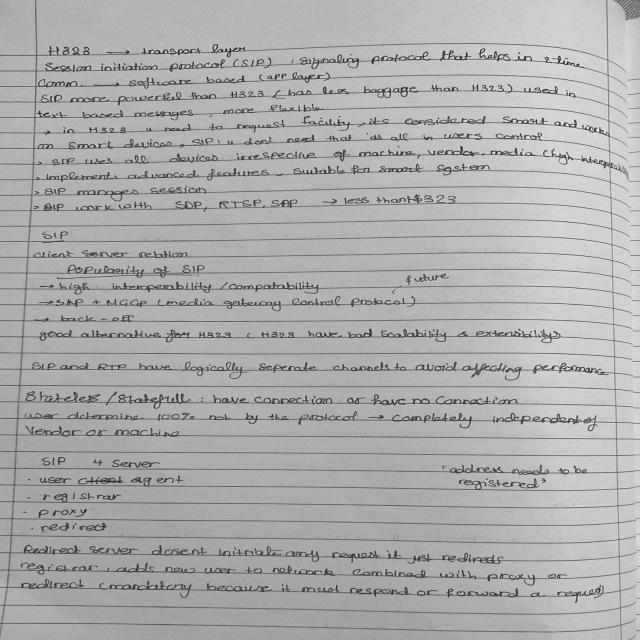 H323 → transport layer
Session initiation protocol (SIP) : signaling protocol that helps in 2-time
Comm. → software based (app layer)
SIP more powerful than H323 (has less baggage than H323) used in
text based messages, more flexible
→ in H323 u need to request facility, its considered smart and works
on smart devices, SIP: u dont need that its all in users control
> SIP uses all devices irrespective of machine, vendor, media (high interoperability
• implements advanced features, suitable for smart system
> SIP manages session
> SIP work with SDP, RTSP, SAP → less than H323
SIP
client server relation
Popularity of SIP
→ high interperability / compatability
future
→ SAP + MGCP (media gateway control protocol)
→ back-off
good alternative for H323 ( H323 have bad scalability & extensibility)
SIP and RTP have logically seperate channels to avoid affecting performance
Stateless / Statefull : have connection or have no connection
user determine 100% not by the protocol → completely independent of
Vendor or machine
SIP 4 server
• user client agent
"address needs to be
registered"
• registrar
• proxy
• redirect
Redirect server dosent initiate any request it just redireds
registrar, adds new user to network combined with proxy or
redirect (mandatory because it must respond or forward a request)